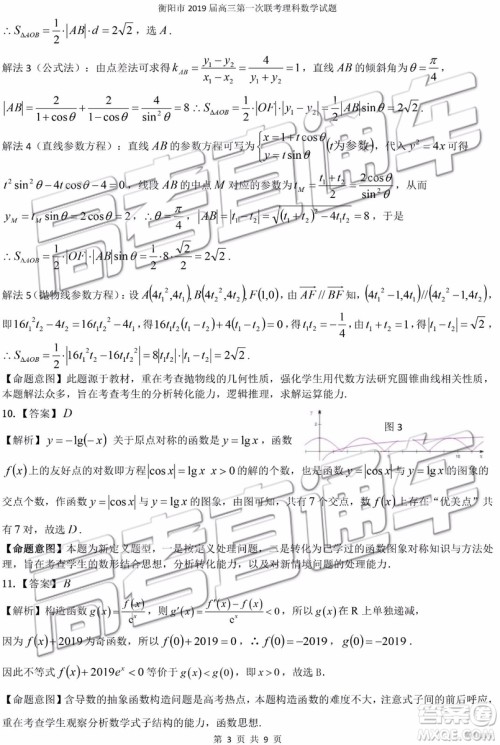 衡阳市 2019 届高三第一次联考理科数学试题
∴S△AOB = 1/2·|AB|·d = 2√2，选 A．
解法 3（公式法）：由点差法可求得 k_AB = (y₁−y₂)/(x₁−x₂) = 4/(y₁+y₂) = 1，直线 AB 的倾斜角为 θ = π/4，
|AB| = 2/(1+cosθ) + 2/(1−cosθ) = 4/sin²θ = 8 ∴S△AOB = 1/2·|OF|·|y₁−y₂| = 1/2|AB|sinθ = 2√2．
解法 4（直线参数方程）：直线 AB 的参数方程可写为 {x=1+tcosθ, y=tsinθ (t为参数)，代入 y²=4x 可得
t²sin²θ−4tcosθ−4=0，线段 AB 的中点 M 对应的参数为 t_M = (t₁+t₂)/2 = 2cosθ/sin²θ，从而
y_M = t_M sinθ−2cosθ=2，∴θ=π/4，|AB|=|t₁−t₂|=√((t₁+t₂)²−4t₁t₂)=8，于是
∴S△AOB = 1/2·|OF|·|AB|sinθ = 1/2·8·√2/2 = 2√2．
解法 5（抛物线参数方程）：设 A(4t₁²,4t₁),B(4t₂²,4t₂),F(1,0)，由 AF // BF 知，(4t₁²−1,4t₁)//(4t₂²−1,4t₂)，
即16t₁²t₂−4t₂=16t₁t₂²−4t₁，得16t₁t₂(t₁−t₂)+4(t₁−t₂)=0，得 t₁t₂=−1/4，由 t₁+t₂=1，得|t₁−t₂|=√2，
∴S△AOB = 1/2·|16t₁²t₂−16t₁t₂²|=8|t₁t₂|·|t₁−t₂|=2√2．
【命题意图】此题源于教材，重在考查抛物线的几何性质，强化学生用代数方法研究圆锥曲线相关性质，
本题解法众多，旨在考查考生的分析转化能力，逻辑推理，求解运算能力．
10.【答案】D
图 3
【解析】y=−lg(−x) 关于原点对称的函数是 y=lg x，函数
f(x)上的友好点的对数即方程|cosx|=lgx x>0的解的个数，也是函数y=|cosx|与y=lgx的图象的
交点个数，作函数 y=|cosx| 与 y=lgx 的图象，由图可知，共有 7 个交点，函数 f(x) 上存在“优美点”共
有 7 对，故选 D．
【命题意图】本题为新定义题型，一是按定义处理问题，二是转化为已学过的函数图象对称知识与方法处
理，旨在考查学生的数形结合思想，分析转化能力，以及对新情境问题的处理能力．
11.【答案】B
【解析】构造函数 g(x)=f(x)/eˣ，则 g′(x)=(f′(x)−f(x))/eˣ<0，所以 g(x) 在 R 上单独递减，
因为 f(x)+2019 为奇函数，所以 f(0)+2019=0，∴f(0)=−2019，g(0)=−2019．
因此不等式 f(x)+2019eˣ<0 等价于 g(x)<g(0)，即 x>0，故选 B．
【命题意图】含导数的抽象函数构造问题是高考热点，本题构造函数的难度不大，计算量适中，主要目的
重在考查学生观察分析数学式子结构的能力，函数与方程思想．
第 3 页 共 9 页
高考直通车